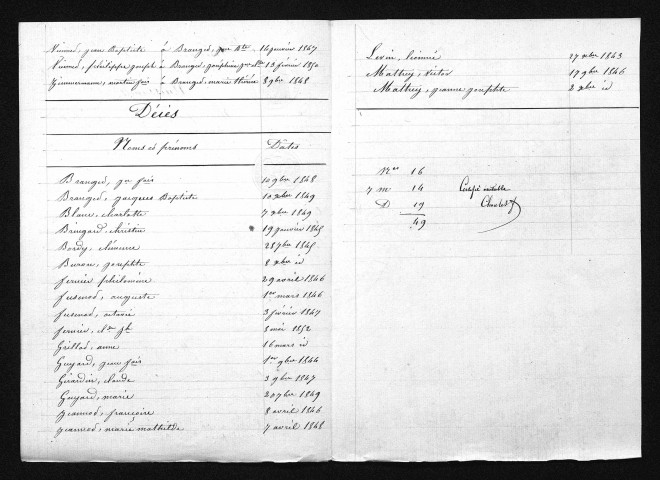 Vienned, jean Baptiste à Branged, jne Bte 16 janvier 1847
Vienned, philippe joseph à Branged, joséphine 13 février 1850
Zimmermann, martin fois à Branged, marie thérèse 8 9bre 1848
Décés
Noms et prénoms Dates
Branged, jn fois 10 9bre 1848
Branged, jacques Baptiste 10 xbre 1849
Blanc, charlotte 7 xbre 1849
Bringard, christine 19 janvier 1845
Bordy, clémence 28 7bre 1845
Buron, josephte 8 xbre id
fernier philomène 29 avril 1846
fusenod, auguste 1er mars 1846
fusenod, octavie 3 février 1847
fernier, 8 mai 1852
Grillod, anne 16 mars id
Guyard, jean fois 1er 9bre 1844
Girardin, claude 3 9bre 1847
Guyard, marie 20 7bre 1849
jeannod, françoise 8 avril 1846
jeannod, marie mathilde 7 avril 1848
Levin, léonnie 27 xbre 1843
Mathey, victor 17 9bre 1846
Mathey, jeanne josephte 2 xbre id
Nces 16
M 14 Certifié véritable
D 19
49